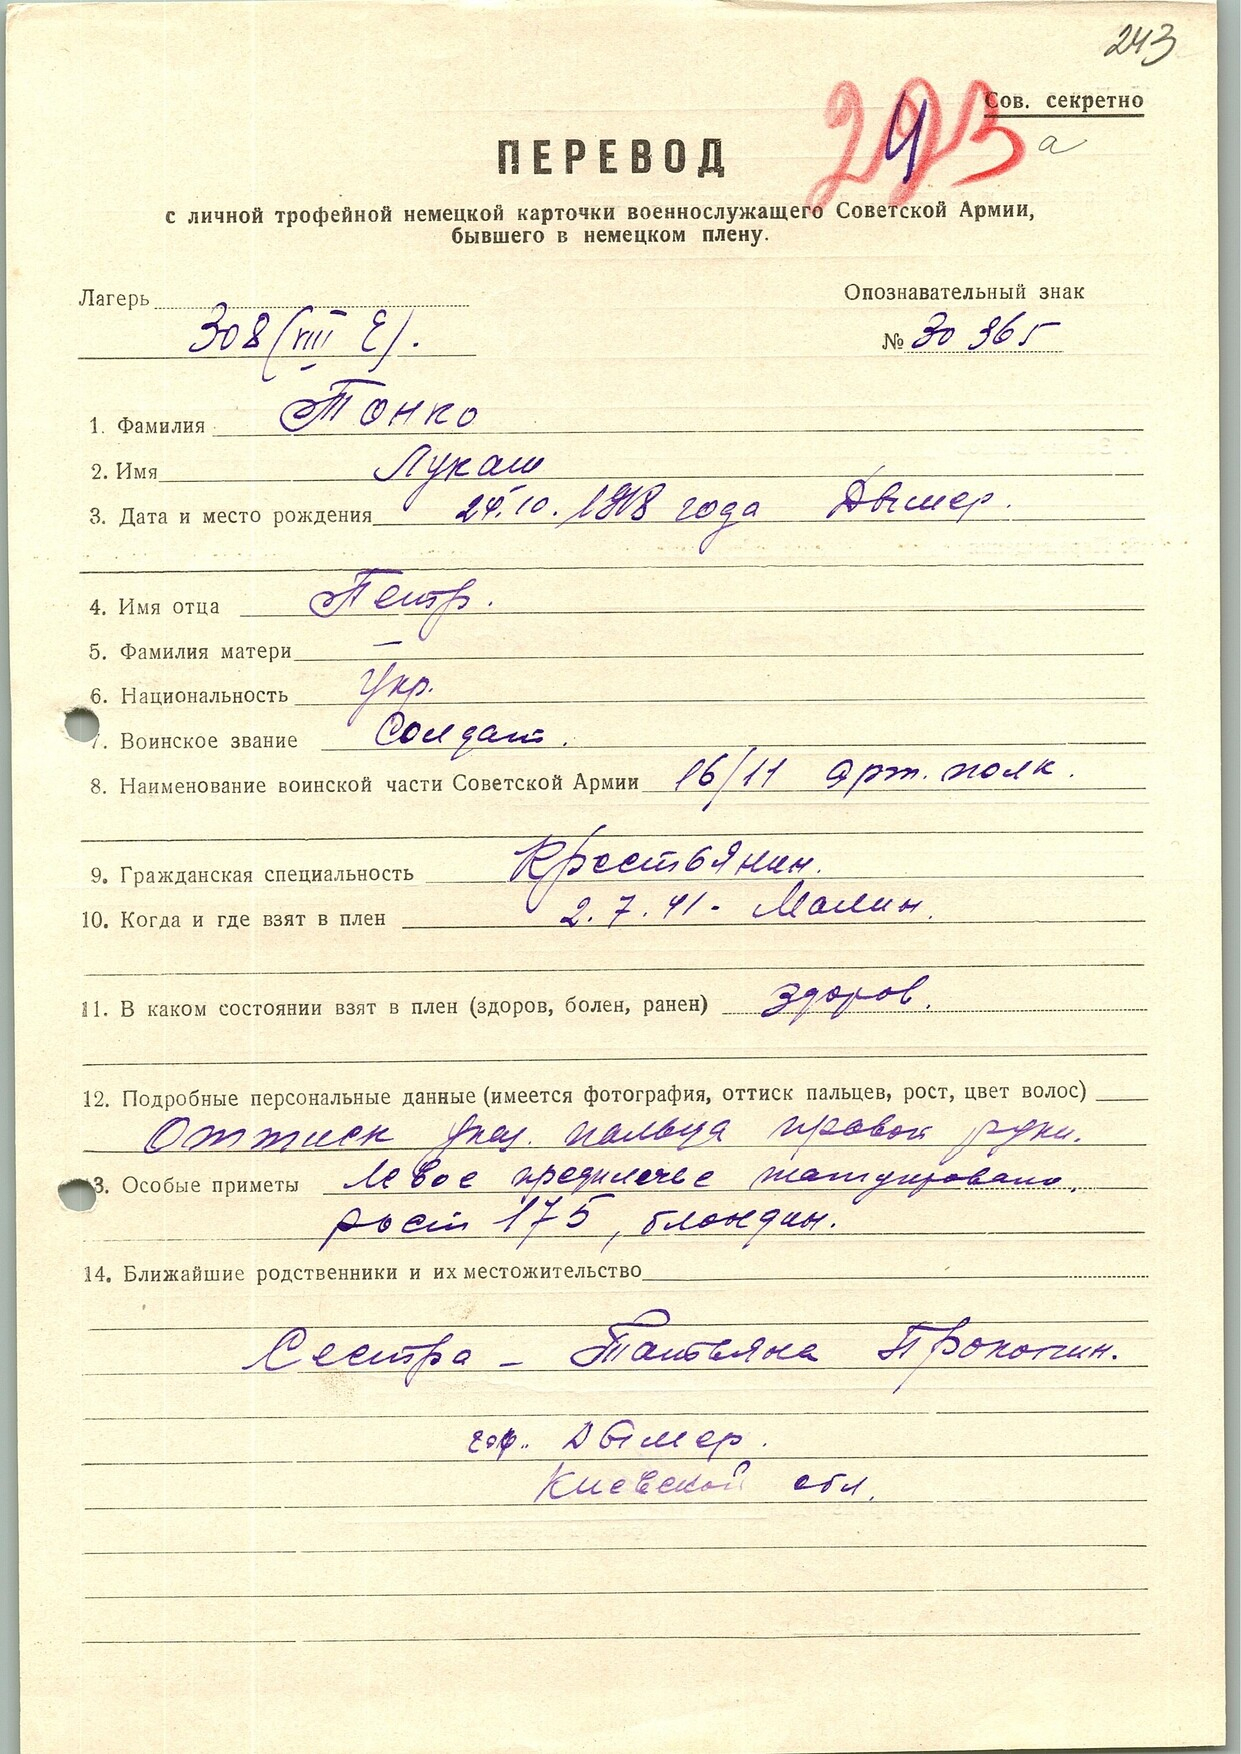 243
Сов. секретно
293 а
ПЕРЕВОД
с личной трофейной немецкой карточки военнослужащего Советской Армии,
бывшего в немецком плену.
Лагерь
Опознавательный знак
308 (VIII E).
№ 30 365
1. Фамилия Тонко
2. Имя Лукаш
3. Дата и место рождения 24.10.1918 года Дымер.
4. Имя отца Петр.
5. Фамилия матери —
6. Национальность Укр.
7. Воинское звание Солдат.
8. Наименование воинской части Советской Армии 16/11 арт. полк.
9. Гражданская специальность Крестьянин.
10. Когда и где взят в плен 2.7.41 - Малин.
11. В каком состоянии взят в плен (здоров, болен, ранен) здоров.
12. Подробные персональные данные (имеется фотография, оттиск пальцев, рост, цвет волос)
Оттиск указ. пальца правой руки.
13. Особые приметы Левое предплечье татуировано.
рост 175, блондин.
14. Ближайшие родственники и их местожительство
Сестра - Татьяна Прокопин.
Дымер.
Киевской обл.